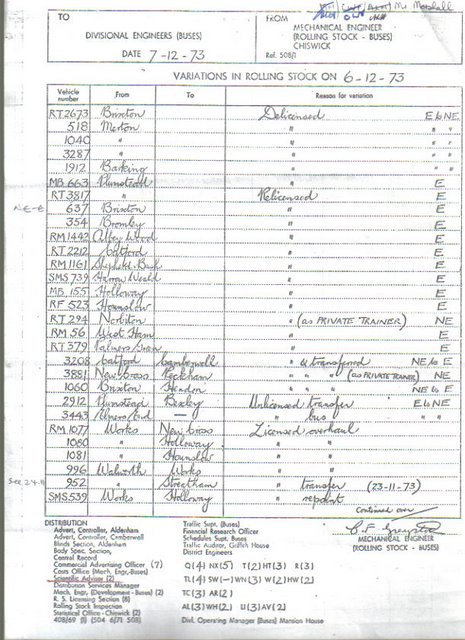 Mr Marshall
TO
DIVISIONAL ENGINEERS (BUSES)
DATE 7-12-73
FROM
MECHANICAL ENGINEER
(ROLLING STOCK - BUSES)
CHISWICK
Ref. 508/1
VARIATIONS IN ROLLING STOCK ON 6-12-73
Vehicle number From To Reason for variation
RT2673 Brixton Delicensed E to NE
518 Merton " " "
1040 " " " "
3287 " " " "
1912 Barking " " "
MB 663 Plumstead " E
RT3817 " Relicensed E
NE-E 637 Brixton " E
354 Bromley " E
RM1442 Abbey Wood " E
RT 2212 Catford " E
RM 1161 Shepherds Bush " E
SMS 739 Harrow Weald " E
MB 155 Holloway " E
RF 523 Hounslow " E
RT 294 Norbiton " (as PRIVATE TRAINER) NE
RM 56 West Ham " E
RT 579 Palmers Green " E
3208 Catford Camberwell " & transferred NE to E
3881 New Cross Peckham " " " (as PRIVATE TRAINER) NE
1060 Brixton Hendon " " " NE to E
2912 Plumstead Bexley Unlicensed transfer E to NE
3443 — " bus " "
RM 1077 Works New Cross Licensed overhaul
1080 " Holloway " "
1081 " Hounslow " "
996 Walworth Works " "
See 24.11 952 " Streatham " transfer (23-11-73)
SMS539 Works Holloway " repaint
Continued over
MECHANICAL ENGINEER
(ROLLING STOCK - BUSES)
DISTRIBUTION
Advert. Controller, Aldenham
Advert. Controller, Camberwell
Blinds Section, Aldenham
Body Spec. Section,
Central Record
Commercial Advertising Officer (7)
Costs Office (Mech. Engr.-Buses)
Scientific Adviser (2)
Distribution Services Manager
Mech. Engr. (Development - Buses) (2)
R. S. Licensing Section (8)
Rolling Stock Inspection
Statistical Office - Chiswick (2)
408/69 (1) (504 6/71 508)
Traffic Supt. (Buses)
Financial Research Officer
Schedules Supt. Buses
Traffic Auditor, Griffith House
District Engineers
Q(4) NX(5) T(2) HT(3) R(3)
TL(4) SW(-) WN(3) W(2) HW(2)
TC(3) AR(2)
AL(3) WH(2) U(3) AV(2)
Divl. Operating Manager (Buses) Mansion House